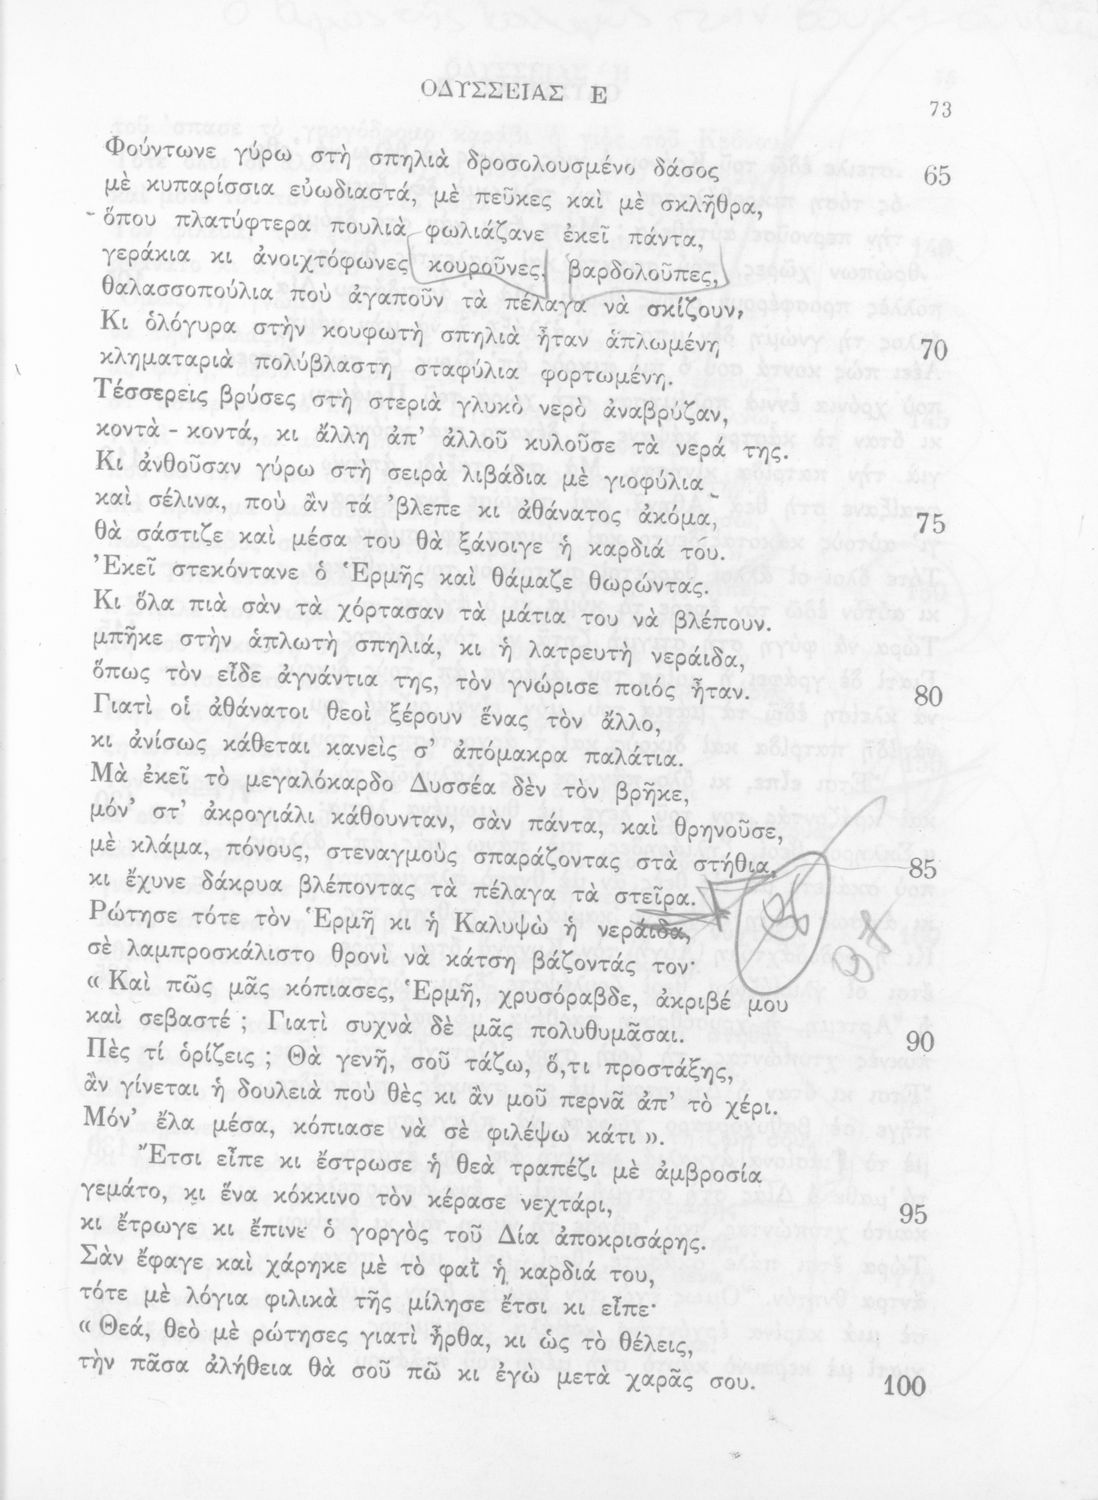 ΟΔΥΣΣΕΙΑΣ Ε
73
Φούντωνε γύρω στὴ σπηλιὰ δροσολουσμένο δάσος 65
μὲ κυπαρίσσια εὐωδιαστά, μὲ πεῦκες καὶ μὲ σκλῆθρα,
ὅπου πλατύφτερα πουλιὰ φωλιάζανε ἐκεῖ πάντα,
γεράκια κι ἀνοιχτόφωνες κουροῦνες, βαρδολοῦπες,
θαλασσοπούλια ποὺ ἀγαποῦν τὰ πέλαγα νὰ σκίζουν,
Κι ὁλόγυρα στὴν κουφωτὴ σπηλιὰ ἦταν ἁπλωμένη 70
κληματαριὰ πολύβλαστη σταφύλια φορτωμένη.
Τέσσερεις βρύσες στὴ στεριὰ γλυκὸ νερὸ ἀναβρύζαν,
κοντὰ - κοντά, κι ἄλλη ἀπ’ ἀλλοῦ κυλοῦσε τὰ νερά της.
Κι ἀνθοῦσαν γύρω στὴ σειρὰ λιβάδια μὲ γιοφύλια
καὶ σέλινα, ποὺ ἂν τά ’βλεπε κι ἀθάνατος ἀκόμα, 75
θὰ σάστιζε καὶ μέσα του θὰ ξάνοιγε ἡ καρδιά του.
’Εκεῖ στεκόντανε ὁ ‘Ερμῆς καὶ θάμαζε θωρώντας.
Κι ὅλα πιὰ σὰν τὰ χόρτασαν τὰ μάτια του νὰ βλέπουν.
μπῆκε στὴν ἁπλωτὴ σπηλιά, κι ἡ λατρευτὴ νεράιδα,
ὅπως τὸν εἶδε ἀγνάντια της, τὸν γνώρισε ποιός ἦταν. 80
Γιατὶ οἱ ἀθάνατοι θεοὶ ξέρουν ἕνας τὸν ἄλλο,
κι ἀνίσως κάθεται κανεὶς σ’ ἀπόμακρα παλάτια.
Μὰ ἐκεῖ τὸ μεγαλόκαρδο Δυσσέα δὲν τὸν βρῆκε,
μόν’ στ’ ἀκρογιάλι κάθουνταν, σὰν πάντα, καὶ θρηνοῦσε,
μὲ κλάμα, πόνους, στεναγμοὺς σπαράζοντας στὰ στήθια, 85
κι ἔχυνε δάκρυα βλέποντας τὰ πέλαγα τὰ στεῖρα.
Ρώτησε τότε τὸν ‘Ερμῆ κι ἡ Καλυψὼ ἡ νεράιδα,
σὲ λαμπροσκάλιστο θρονὶ νὰ κάτση βάζοντάς τον·
« Καὶ πῶς μᾶς κόπιασες, ‘Ερμῆ, χρυσόραβδε, ἀκριβέ μου
καὶ σεβαστέ ; Γιατὶ συχνὰ δὲ μᾶς πολυθυμᾶσαι. 90
Πὲς τί ὁρίζεις ; Θὰ γενῆ, σοῦ τάζω, ὅ,τι προστάξης,
ἂν γίνεται ἡ δουλειὰ ποὺ θὲς κι ἂν μοῦ περνᾶ ἀπ’ τὸ χέρι.
Μόν’ ἔλα μέσα, κόπιασε νὰ σὲ φιλέψω κάτι ».
῎Ετσι εἶπε κι ἔστρωσε ἡ θεὰ τραπέζι μὲ ἀμβροσία
γεμάτο, κι ἕνα κόκκινο τὸν κέρασε νεχτάρι, 95
κι ἔτρωγε κι ἔπινε ὁ γοργὸς τοῦ Δία ἀποκρισάρης.
Σὰν ἔφαγε καὶ χάρηκε μὲ τὸ φαῒ ἡ καρδιά του,
τότε μὲ λόγια φιλικὰ τῆς μίλησε ἔτσι κι εἶπε·
« Θεά, θεὸ μὲ ρώτησες γιατὶ ἦρθα, κι ὡς τὸ θέλεις,
τὴν πᾶσα ἀλήθεια θὰ σοῦ πῶ κι ἐγὼ μετὰ χαρᾶς σου. 100